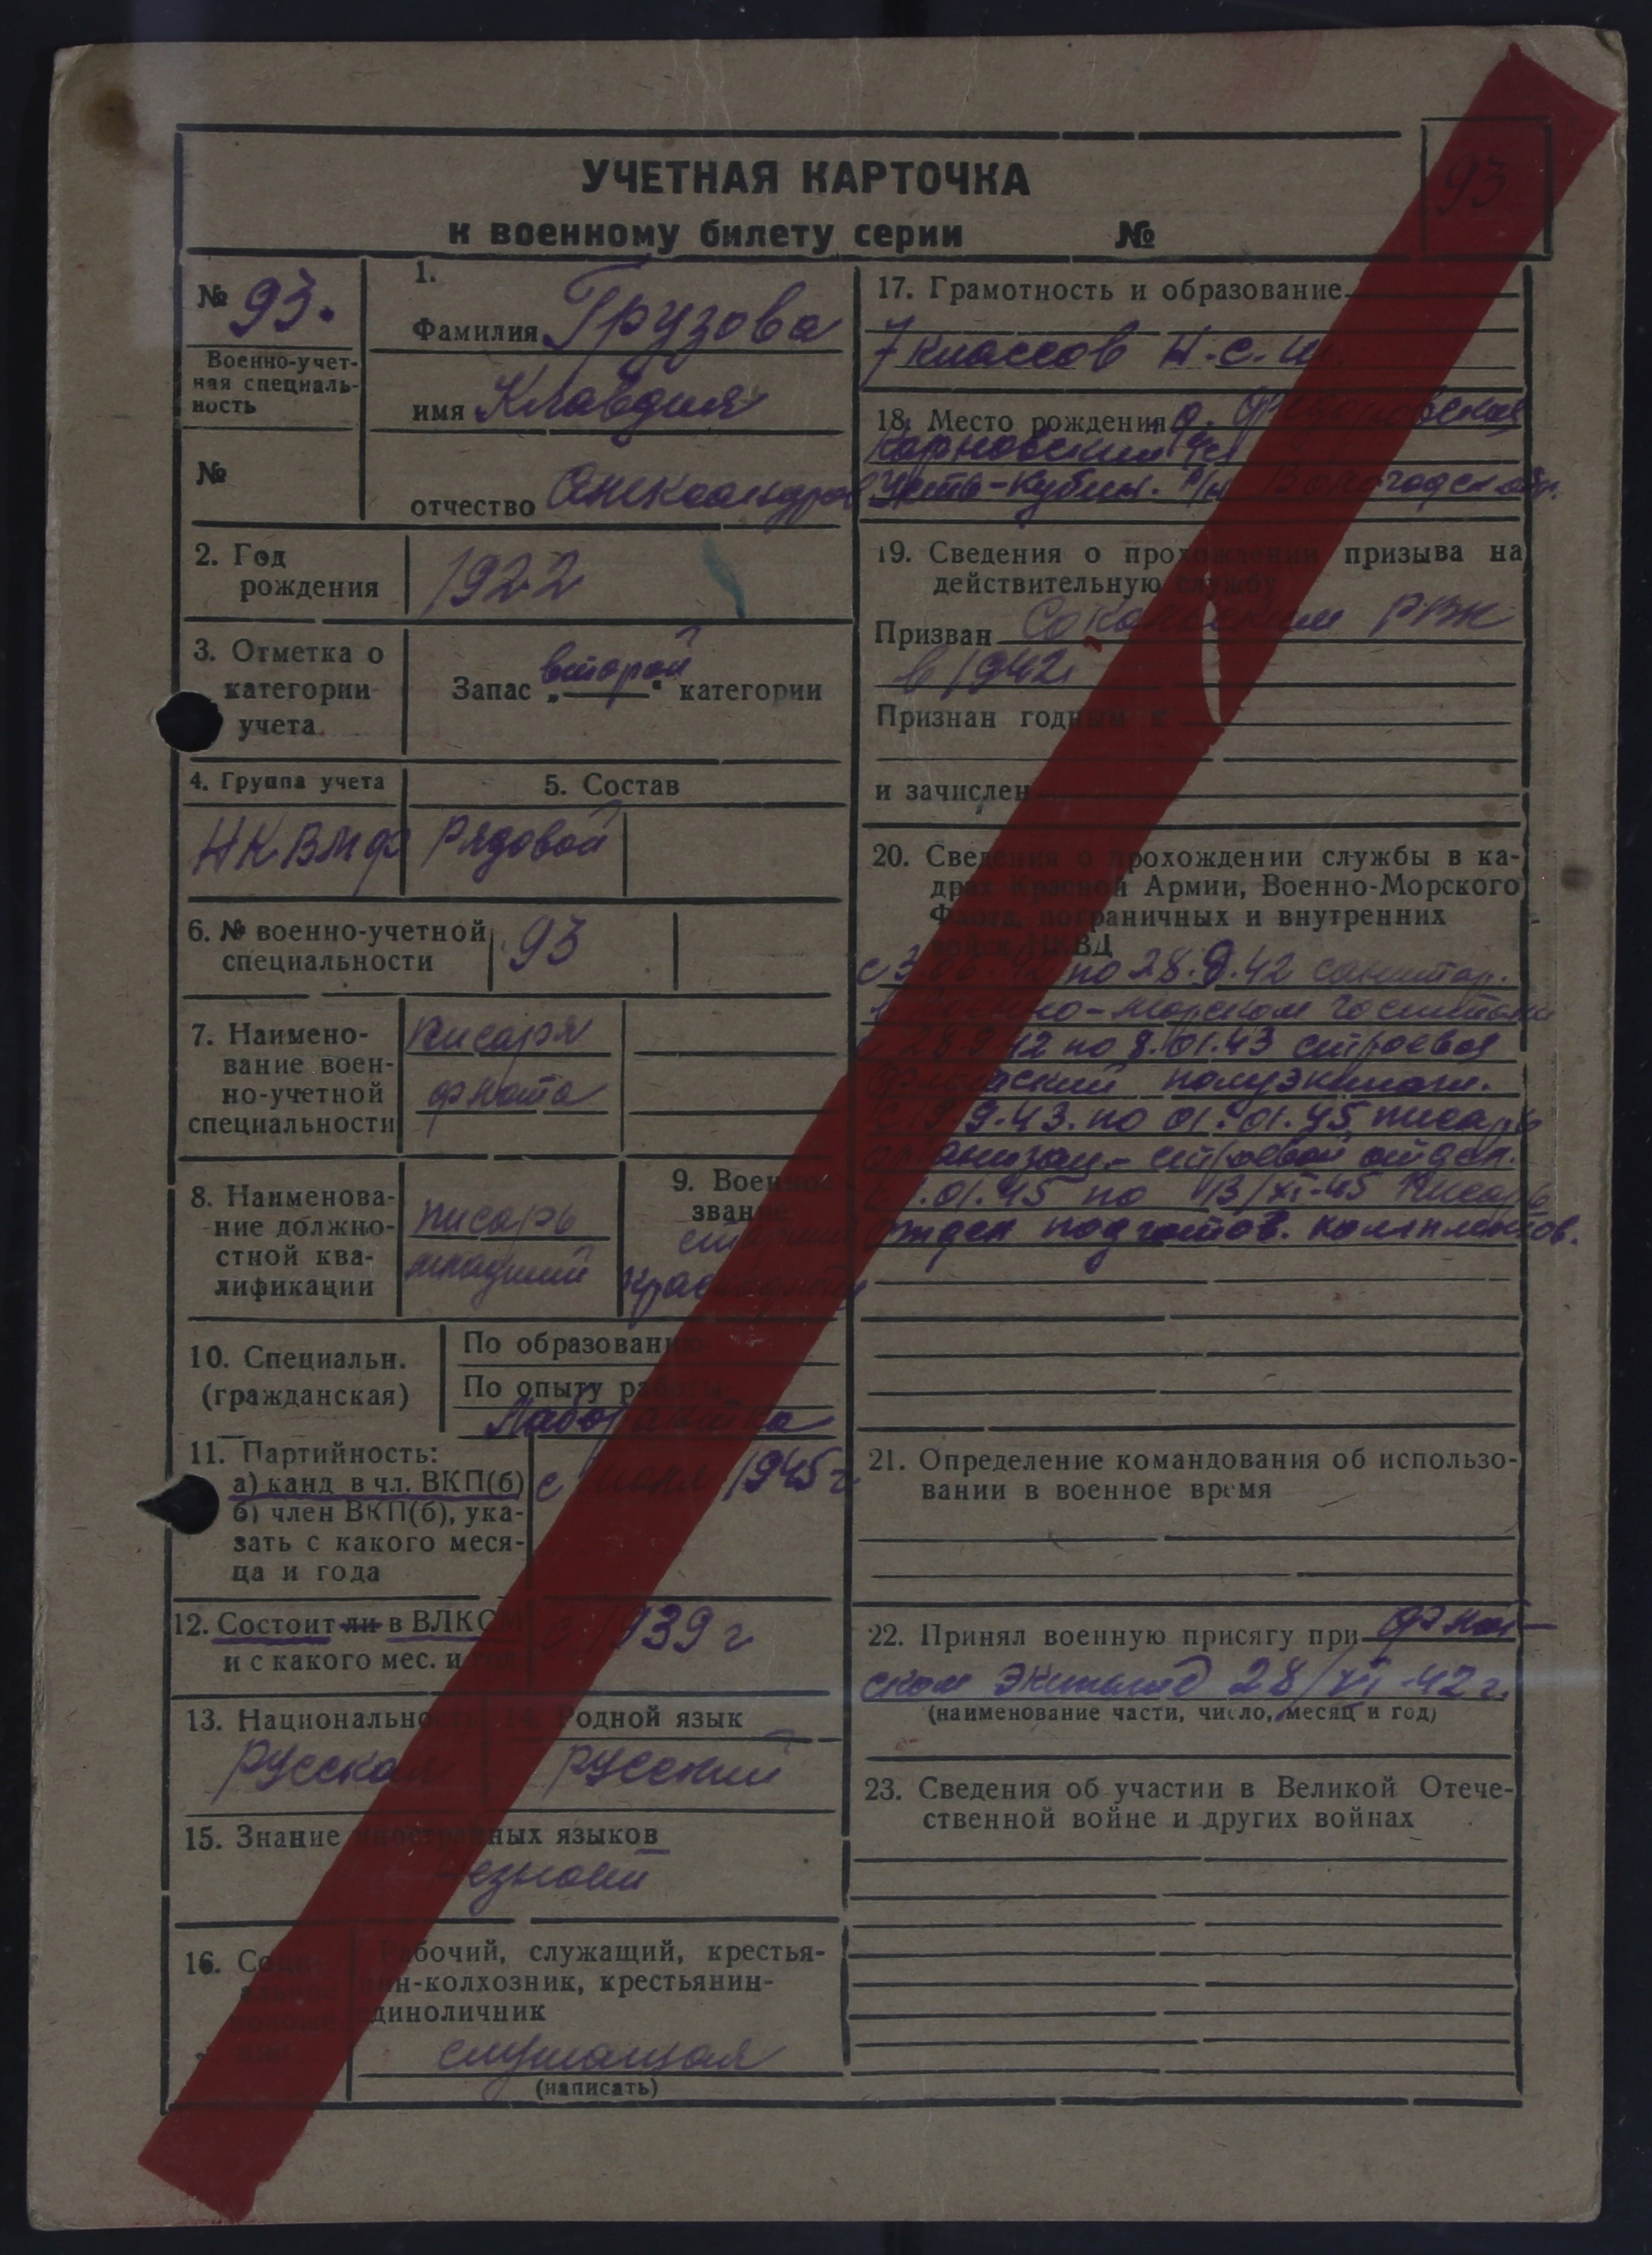 УЧЕТНАЯ КАРТОЧКА
к военному билету серии №
93
№ 93.
Военно-учет-
ная специаль-
ность
№
1.
Фамилия Грузова
имя Клавдия
отчество Александров
2. Год
рождения
1922
3. Отметка о
категории
учета.
Запас „второй“ категории
4. Группа учета
5. Состав
НКВМФ
Рядовой
6. № военно-учетной
специальности
93
7. Наимено-
вание воен-
но-учетной
специальности
писаря
флота
8. Наименова-
ние должно-
стной ква-
лификации
писарь
младший
9. Военное
звание
старший
краснофлот
10. Специальн.
(гражданская)
По образованию
По опыту работы
Лаборантка
11. Партийность:
а) канд в чл. ВКП(б)
б) член ВКП(б), ука-
зать с какого меся-
ца и года
с 1945 г
12. Состоит ли в ВЛКСМ
и с какого мес. и год
с 1939 г
13. Национальность
русская
14. Родной язык
русский
15. Знание иностранных языков
незнаю
16. Социальное
положение
Рабочий, служащий, крестья-
нин-колхозник, крестьянин-
единоличник
служащая
(написать)
17. Грамотность и образование
7 классов Н.с.ш.
18. Место рождения д.
Усть-Кубин. р/н Вологодск обл.
19. Сведения о прохождении призыва на
действительную службу
Призван Сокольским РВК
в 1942г
Признан годным к
и зачислен
20. Сведения о прохождении службы в ка-
драх Красной Армии, Военно-Морского
Флота, пограничных и внутренних
войск НКВД
с 3.06.42 по 28.9.42 санитар.
в Военно-морском госпитале
с 28.9.42 по 8.01.43 строевая
Флотский полуэкипаж.
с 9.9.43. по 01.01.45 писарь
организац.- строевой отдел.
с 1.01.45 по 13/XI-45 Писарь
Отдел подготов. комплектов.
21. Определение командования об использо-
вании в военное время
22. Принял военную присягу при Флот-
ском Экипаже 28/XI-42 г.
(наименование части, число, месяц и год)
23. Сведения об участии в Великой Отече-
ственной войне и других войнах